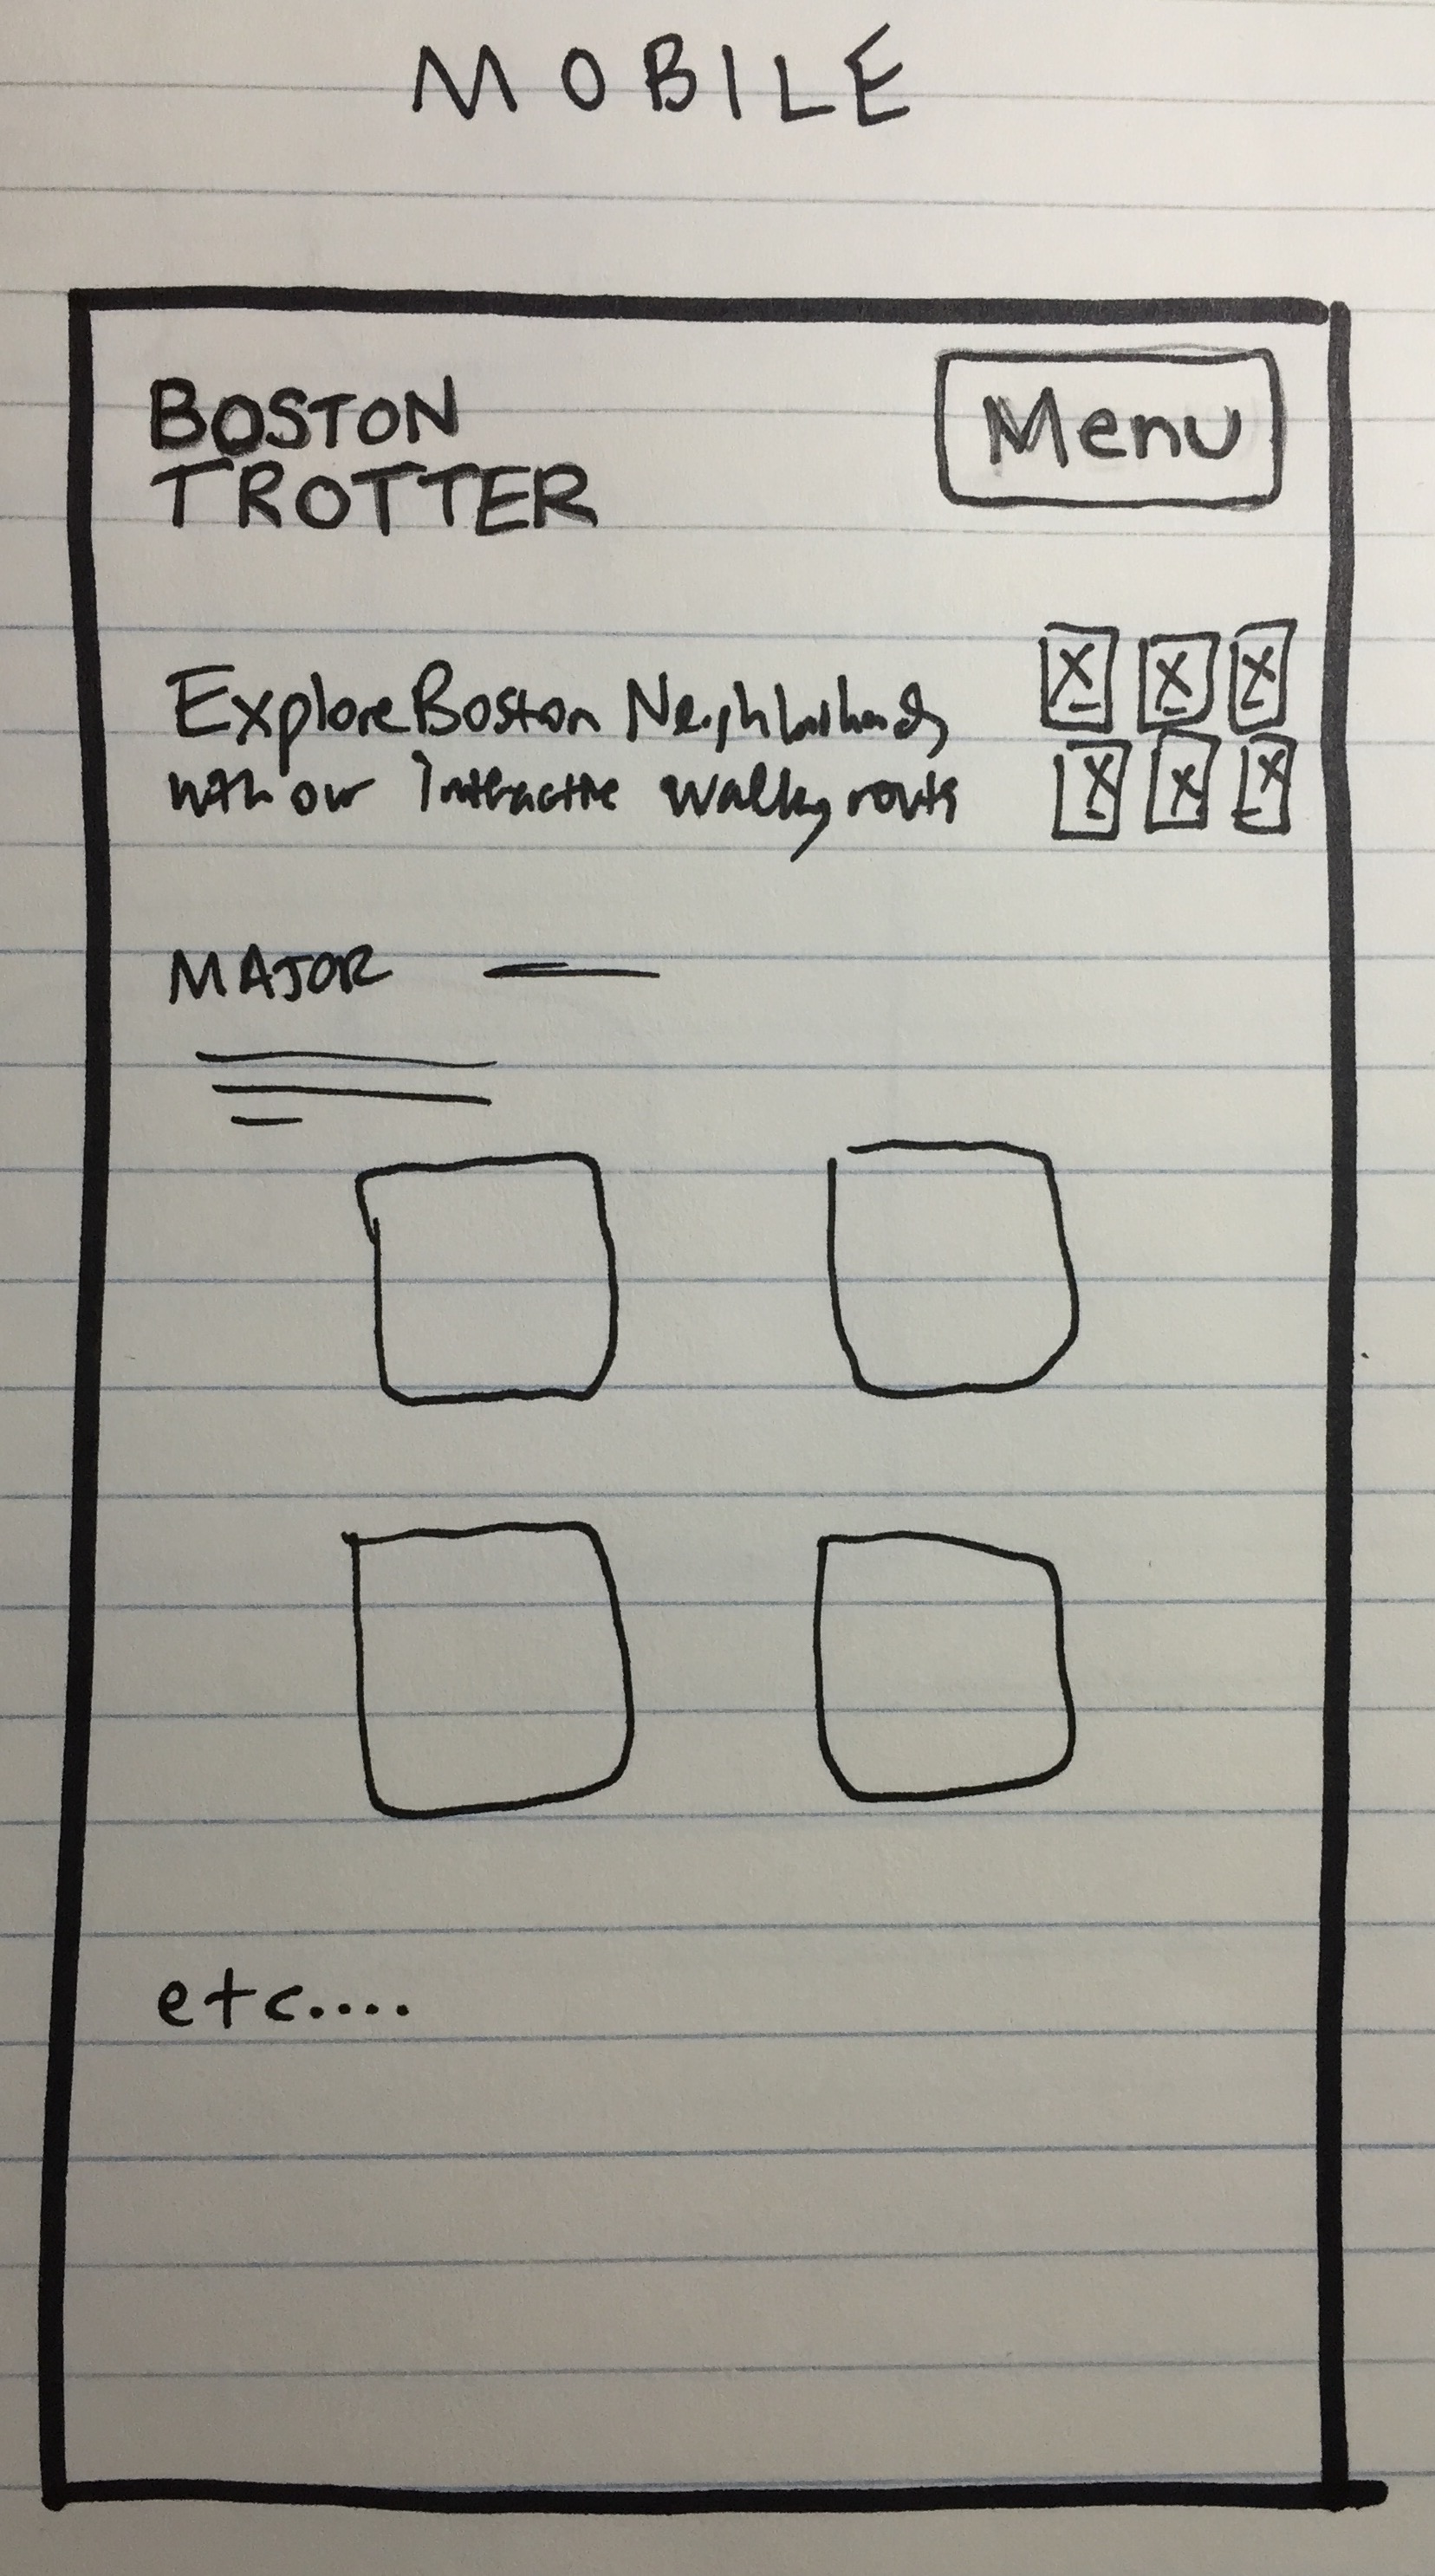 MOBILE
BOSTON
TROTTER
Menu
Explore Boston Neighborhoods
with our interactive walking routes
X X X
X X X
MAJOR
etc....